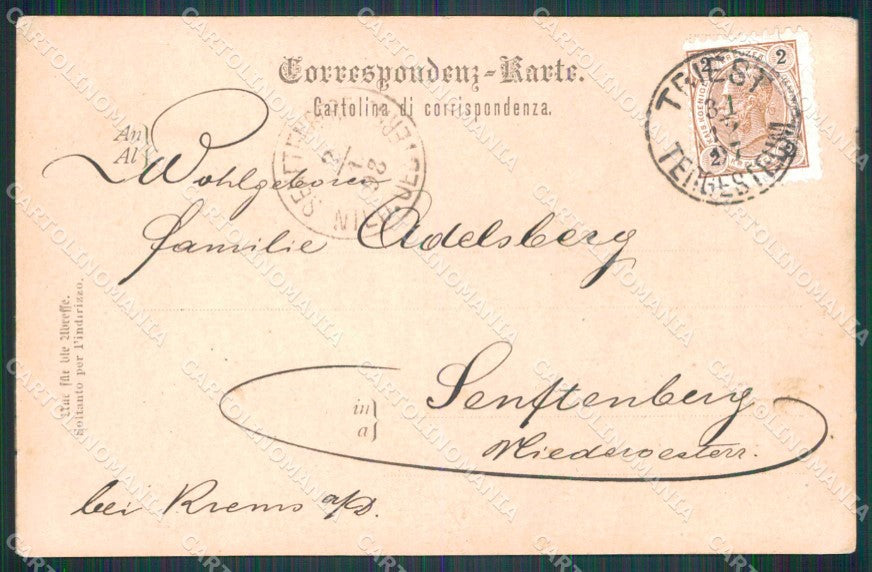 Correspondenz-Karte.
Cartolina di corrispondenza.
An
Al
Wohlgeboren
Familie Adelsberg
in
a
Senftenberg
Niederoesterr.
bei Krems a/D.
Nur für die Adresse.
Soltanto per l'indirizzo.
2 2
2
TRIEST
31
7
TERGESTEUM
SENFTEN
2/1
98
CARTOLINOMANIA